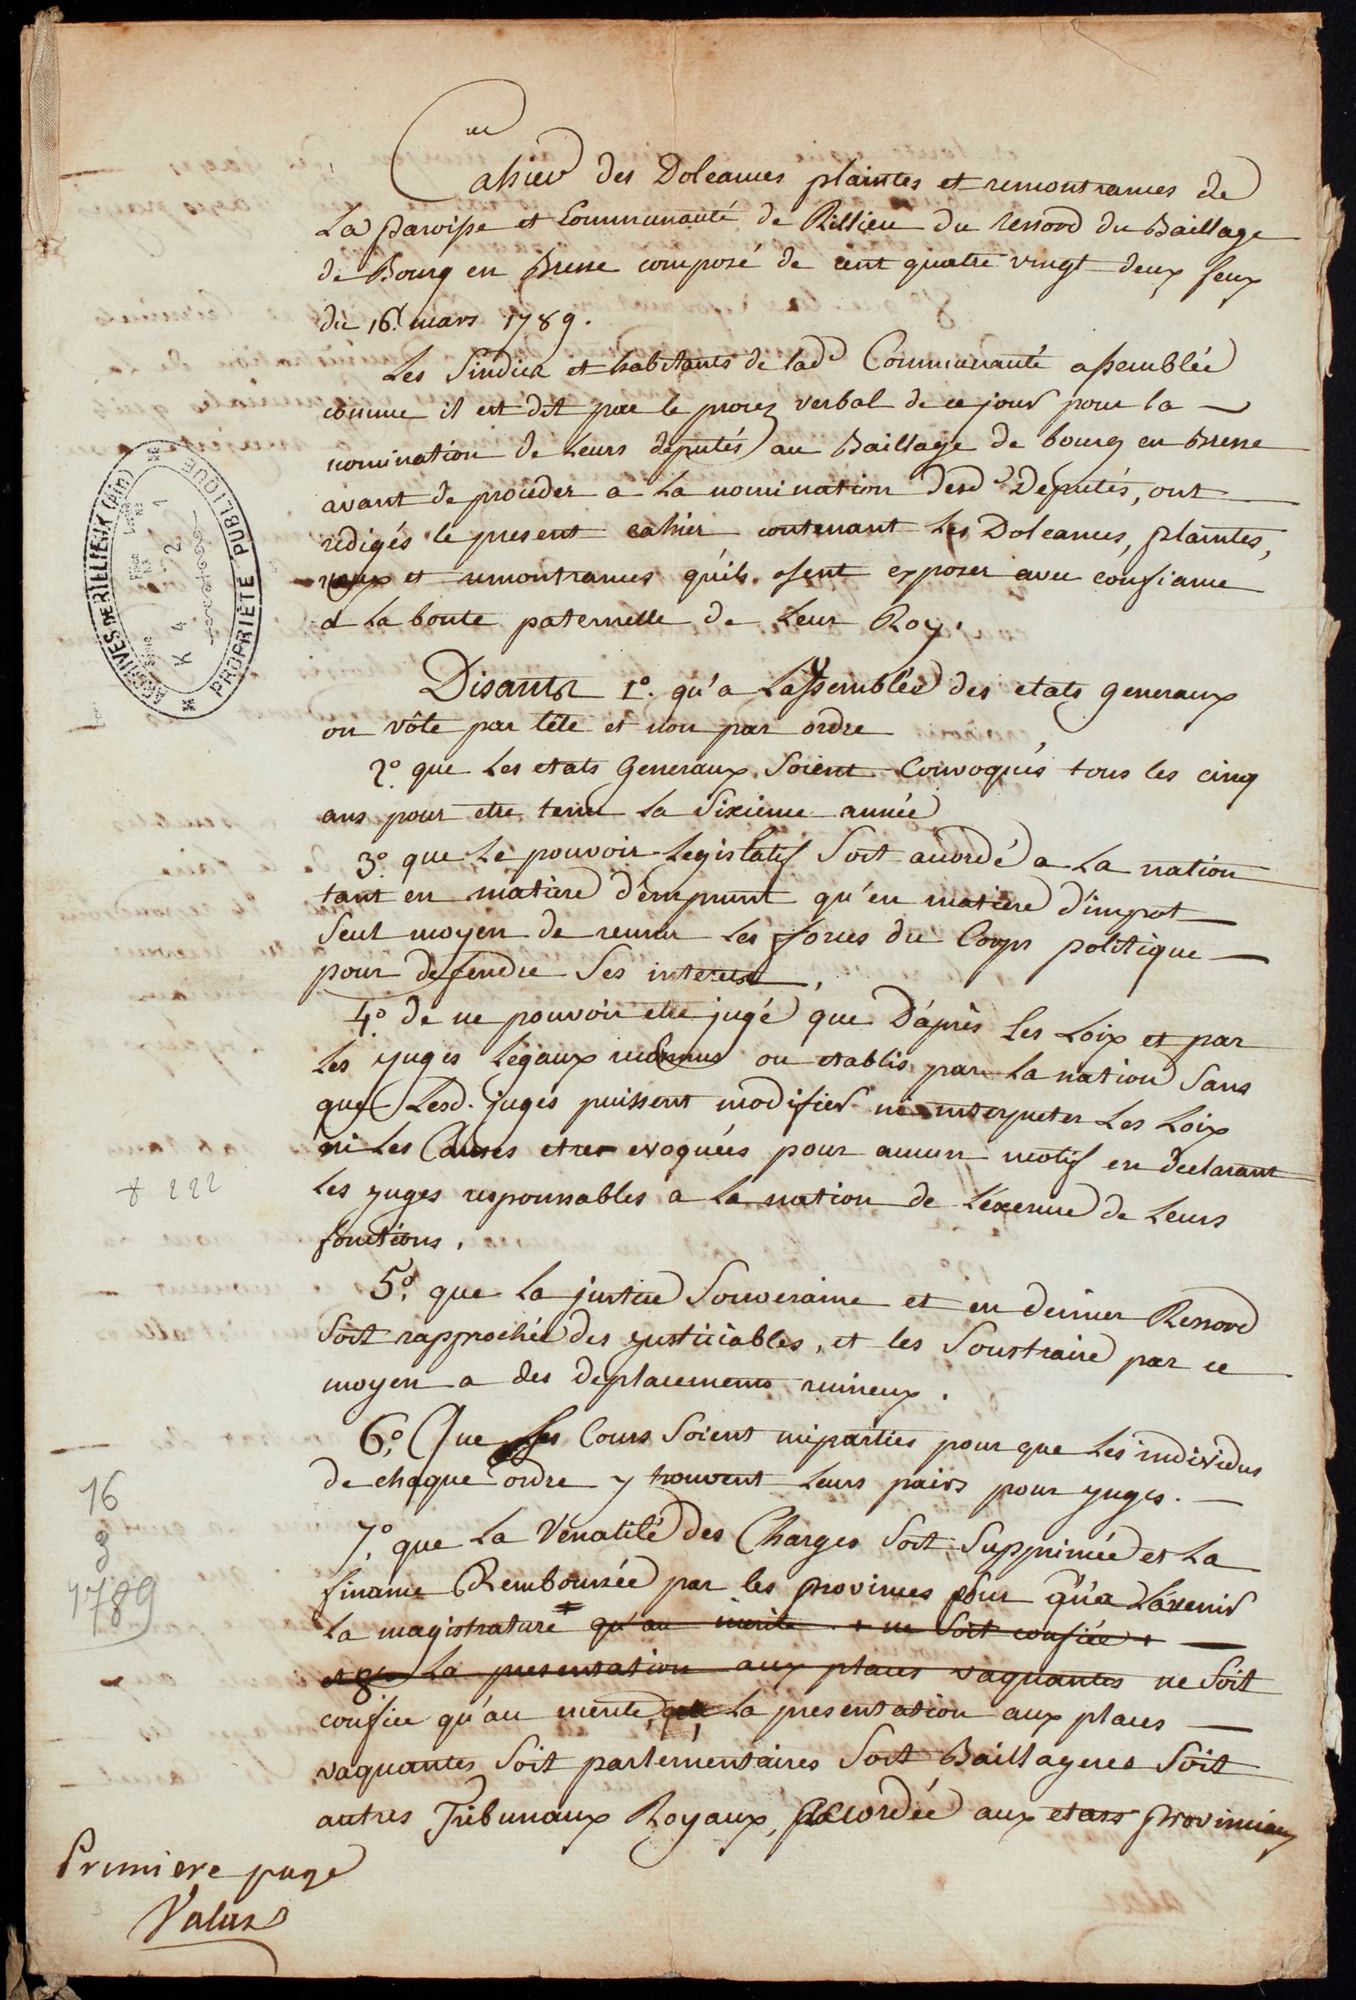 Cahier des Doleances plaintes et remontrances de
La paroisse et Communauté de Rillieu du ressord du Baillage
de Bourg en Bresse composé de cent quatre vingt deux feux
du 16. mars 1789.
Les Sindics et habitants de lad. Communauté assemblée
comme il est dit par le procez verbal de ce jour pour la
nomination de Leurs députés au Baillage de bourg en Bresse
avant de proceder a La nomination desd. Deputés, ont
redigés le present cahier contenant Les Doleances, plaintes,
vœux et remontrances qu'ils osent exposer avec confiance
a La bonté paternelle de Leur Roy.
Disants 1º. qu'a L'assemblée des etats generaux
on vôte par tête et non par ordre
2º. que Les etats Generaux Soient Convoqués tous les cinq
ans pour etre tenu La Sixieme année
3º. que Le pouvoir Legislatif Soit accordé a La nation
tant en matiere d'emprunt qu'en matiere d'impot
Seul moyen de reunir Les forces du Corps politique
pour defendre Ses interest.
4º. de ne pouvoir etre jugé que D'après Les Loix et par
Les yuges Légaux reconnus ou etablis par La nation Sans
que Lesd. juges puissent modifier ni interpreter Les Loix
ni Les Causes etres evoquées pour aucun motif en declarant
Les yuges responsables a La nation de L'exercice de Leurs
fonctions.
5º. que La justice Souveraine et en dernier Ressord
Soit rapprochée des yusticiables, et les Soustraire par ce
moyen a des deplacements ruineux.
6º. Que Les Cours Soient miparties pour que Les individus
de chaque ordre y trouvent Leurs pairs pour yuges.
7º. que La Vénalité des Charges Soit Supprimée et La
finance Remboursée par les provinces pour qu'a L'avenir
La magistrature qu'au merite + ne Soit confiée +
et que La presentation aux places vaquantes ne Soit
confiée qu'au merite, que La presentation aux places
vaquantes Soit parlementaires Soit Baillageres Soit
autres Tribunaux Royaux, accordée aux etats provinciaux
Premiere page
Valux
ARCHIVES DE RILLIEUX (Ain)
PROPRIÉTÉ PUBLIQUE
K 4 2 1
+ 222
16
3
1789